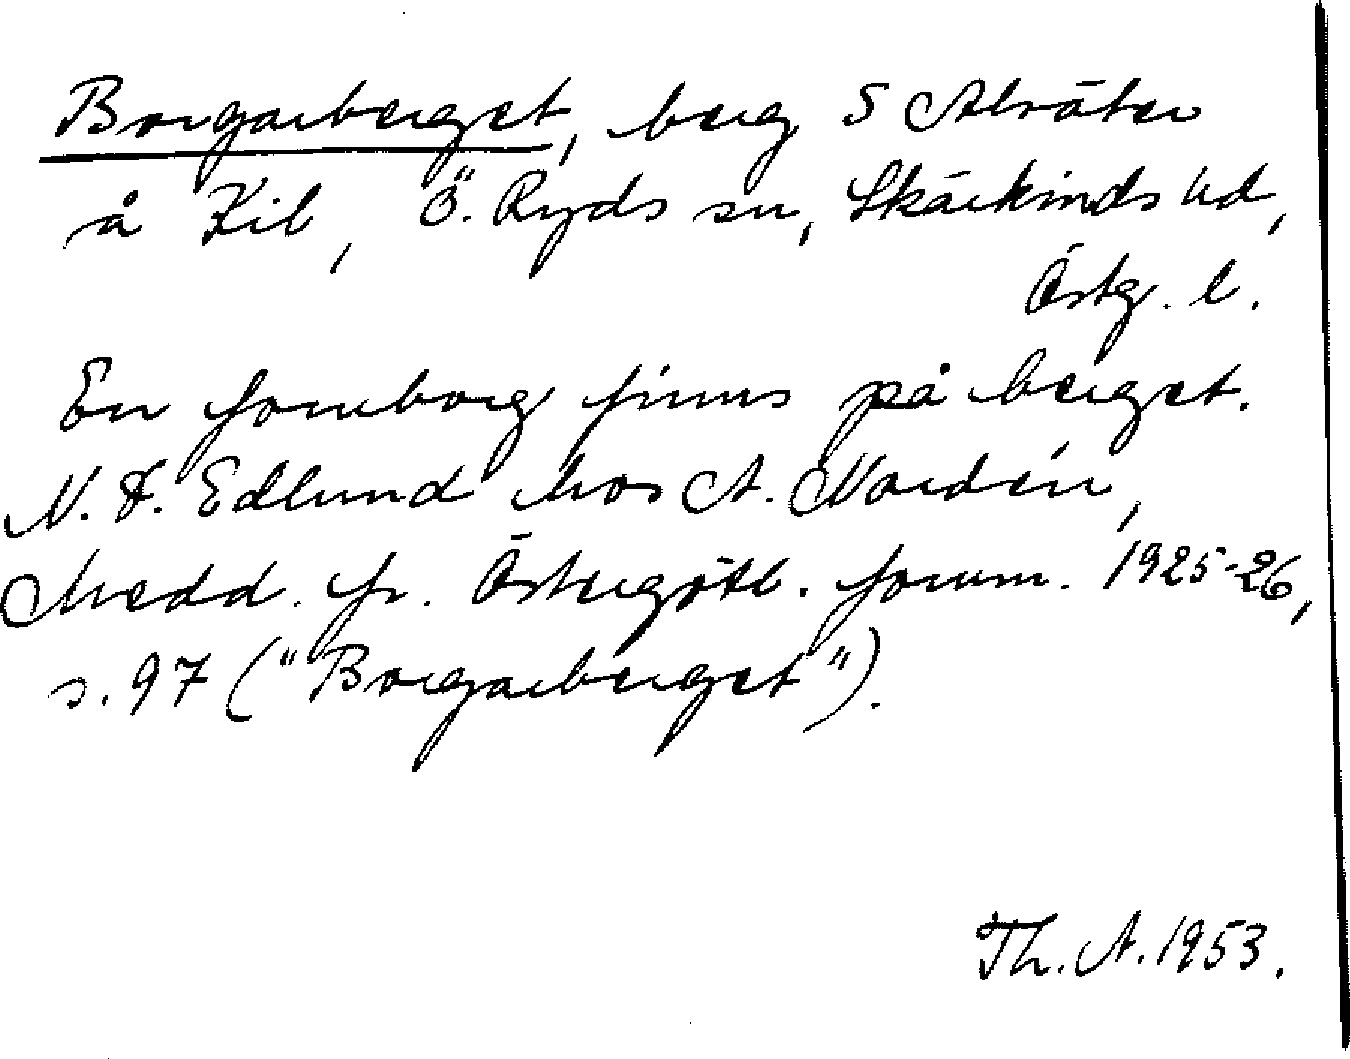 Borgarberget, berg S Alsäter
å Kil, Ö. Ryds sn, Skärkinds hd,
Östg. l.
En fornborg finns på berget.
N. D. Edlund hos A. Nordén,
Medd. fr. Östergötl. fornm. 1925-26,
s. 97 ("Borgarberget").
Th. A. 1953.